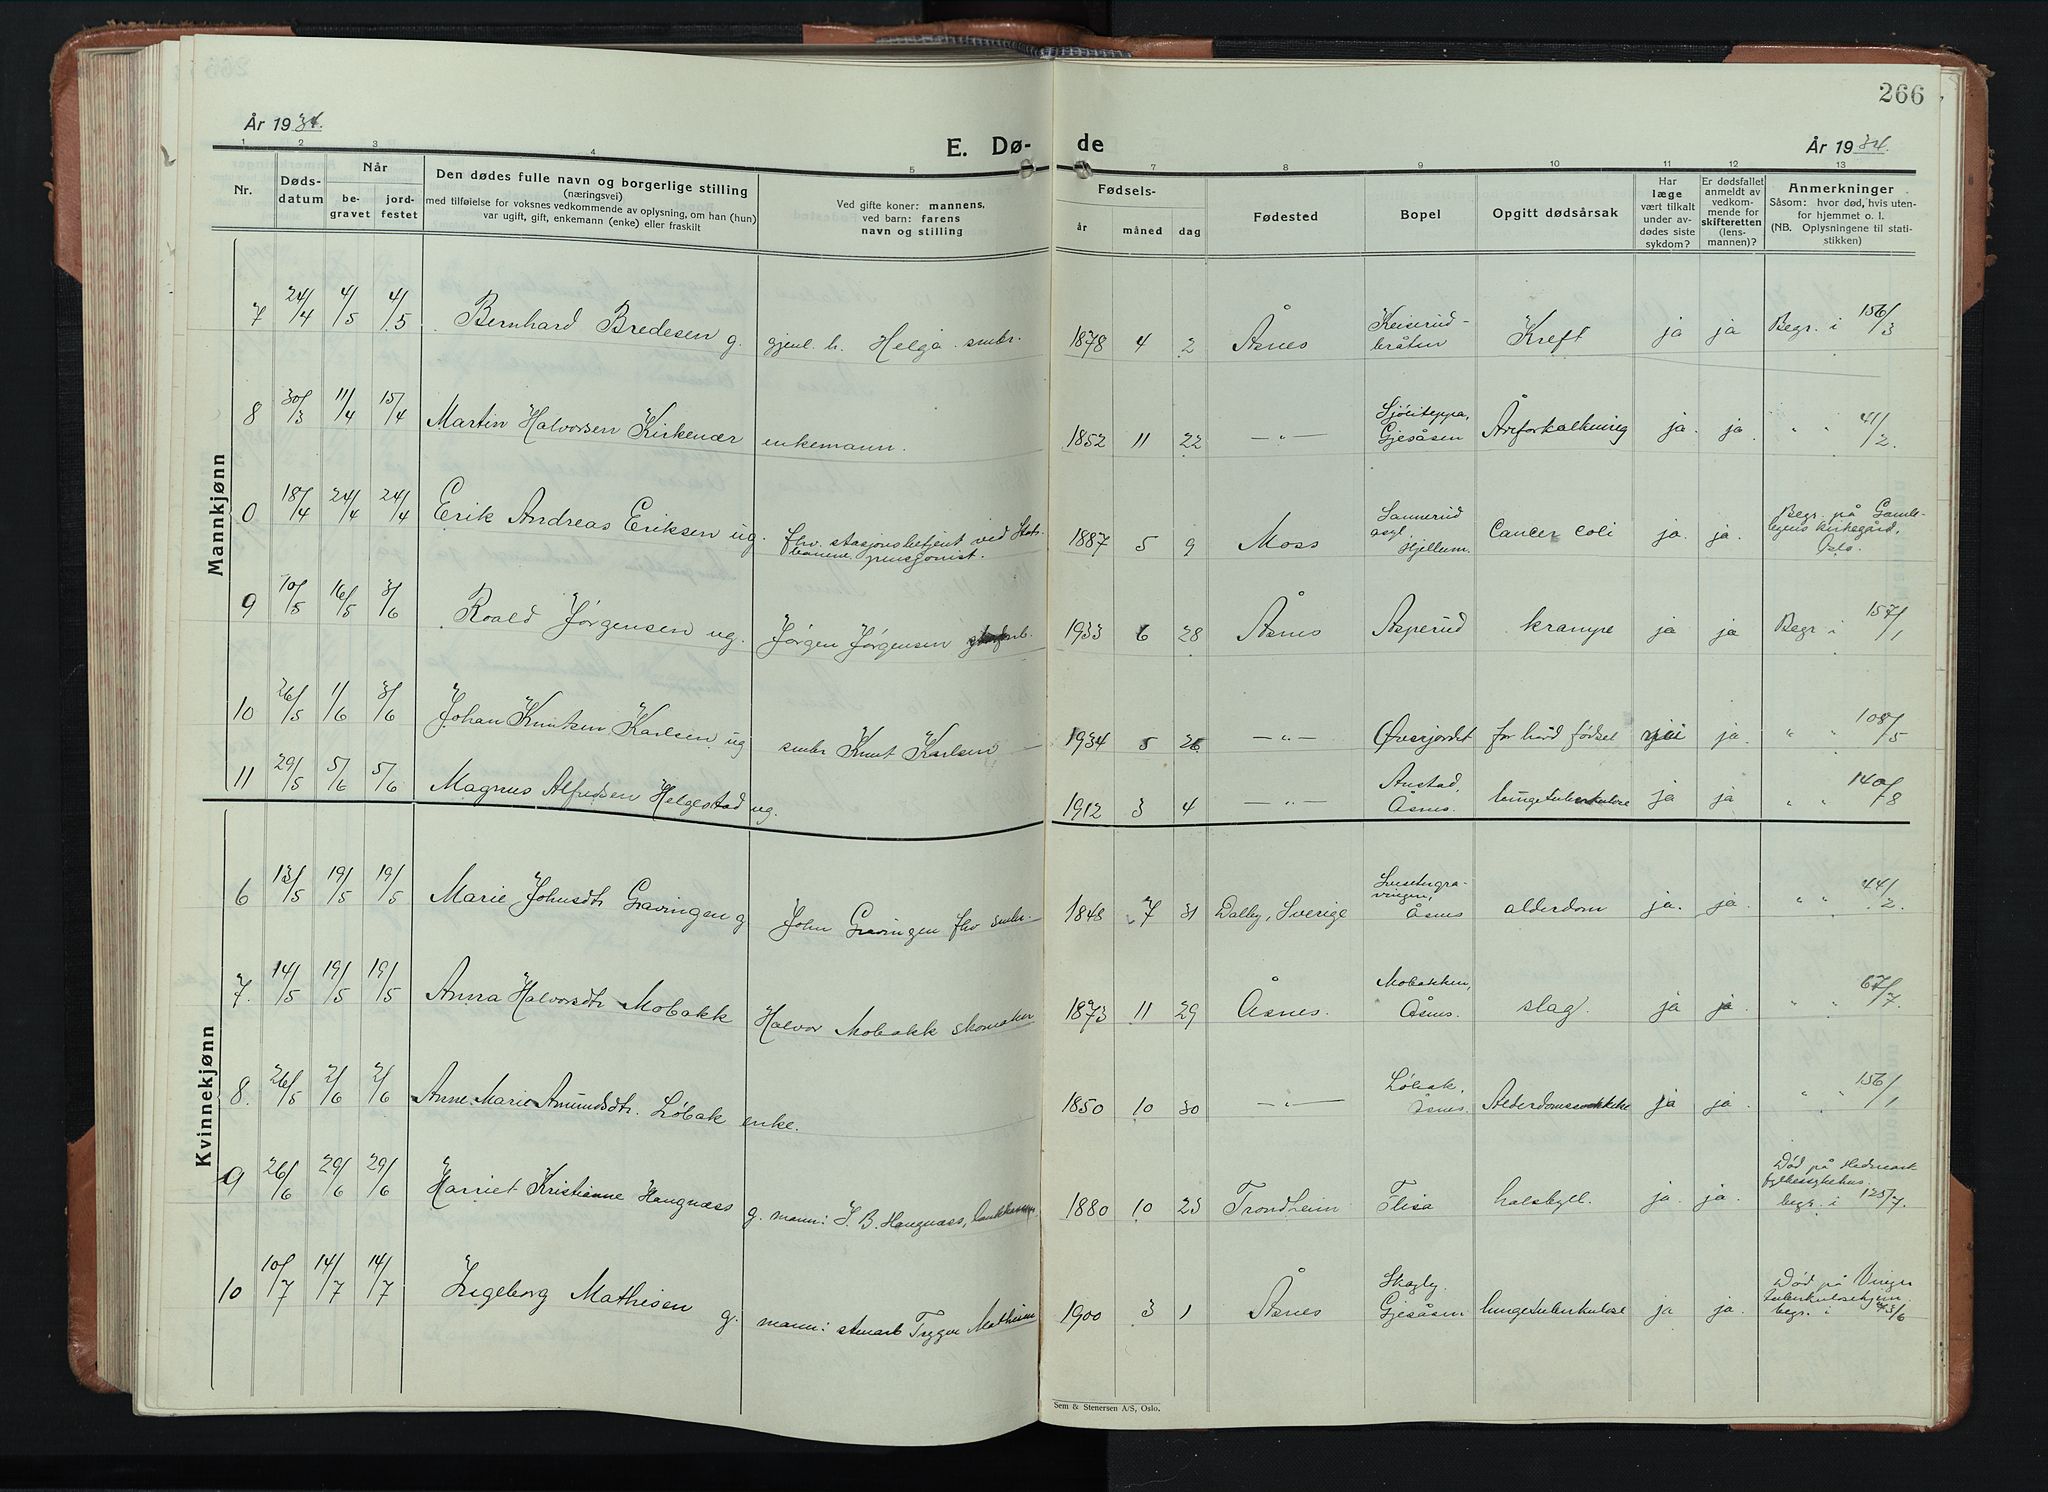 266
År 1934.
E. Dø-de
År 1934.
1 2 3 4 5 7 8 9 10 11 12 13
Nr.
Døds-
datum
Når
be-
gravet
jord-
festet
Den dødes fulle navn og borgerlige stilling
(næringsvei)
med tilføielse for voksnes vedkommende av oplysning, om han (hun)
var ugift, gift, enkemann (enke) eller fraskilt
Ved gifte koner: mannens,
ved barn: farens
navn og stilling
Fødsels-
år måned dag
Fødested
Bopel
Opgitt dødsårsak
Har
læge
vært tilkalt
under av-
dødes siste
sykdom?
Er dødsfallet
anmeldt av
vedkom-
mende for
skifteretten
(lens-
mannen)?
Anmerkninger
Såsom: hvor død, hvis uten-
for hjemmet o. l.
(NB. Oplysningene til stati-
stikken)
Mannkjønn
7 24/4 4/5 4/5 Bernhard Bredesen g. gjenl. h. Helga smbr. 1878 4 2 Åsnes Keiserud-
bråten Kreft ja ja Begr. i 156/3
8 30/3 11/4 15/4 Martin Halvorsen Kirkenær enkemann. 1852 11 22 —"— Sjøliteppa,
Gjesåsen Årforkalkning ja. ja. " " 41/2.
0 18/4 24/4 24/4 Erik Andreas Eriksen ug. fhv. stasjonsbetjent ved Stats-
banene pensjonist. 1887 5 9 Moss Sannerud
asyl
Hjellum. Cancer coli ja. ja. Begr. på Gamle-
byens kirkegård,
Oslo.
9 10/5 16/5 3/6 Roald Jørgensen ug. Jørgen Jørgensen 1933 6 28 Åsnes Asperud krampe ja ja Begr. i 157/1
10 26/5 1/6 3/6 Johan Knutsen Karlsen ug smbr Knut Karlsen 1934 5 26 —"— Øverjordet for hård fødsel ja. " " 108/5
11 29/5 5/6 5/6 Magnus Alfredsen Helgestad ug. 1912 3 4 —"— Anstad,
Åsnes. lungetuberkulose ja ja " " 140/8
Kvinnekjønn
6 13/5 19/5 19/5 Marie Johnsdtr Gravingen g John Gravingen fhv smbr. 1848 7 31 Dalby, Sverige
Åsnes alderdom ja. ja. " " 44/2.
7. 14/5 19/5 19/5 Anna Halvorsdtr Mobakk Halvor Mobakk skomaker 1873 11 29 Åsnes. Mobakken,
Åsnes. slag. ja ja " " 67/7.
8. 26/5 2/6 2/6 Anne Marie Amundsdtr. Løbak enke. 1850 10 30 —"— Løbak,
Åsnes. Alderdomssvakkelse ja ja. " " 156/1
9 26/6 29/6 29/6 Harriet Kristianne Haugnæss g. mann: S. B. Haugnæss, 1880 10 25 Trondheim Flisa halsbyll. ja. ja. Død på Hedmark
fylkessykehus.
begr. i 125/7.
10 10/7 14/7 14/7 Ingeborg Mathisen g. mann: stuert Trygve Mathisen 1900 3 1 Åsnes Skogly
Gjesåsen lungetuberkulose ja ja. Død på Vinger
tuberkulosehjem.
begr. i 43/6
Sem & Stenersen A/S, Oslo.